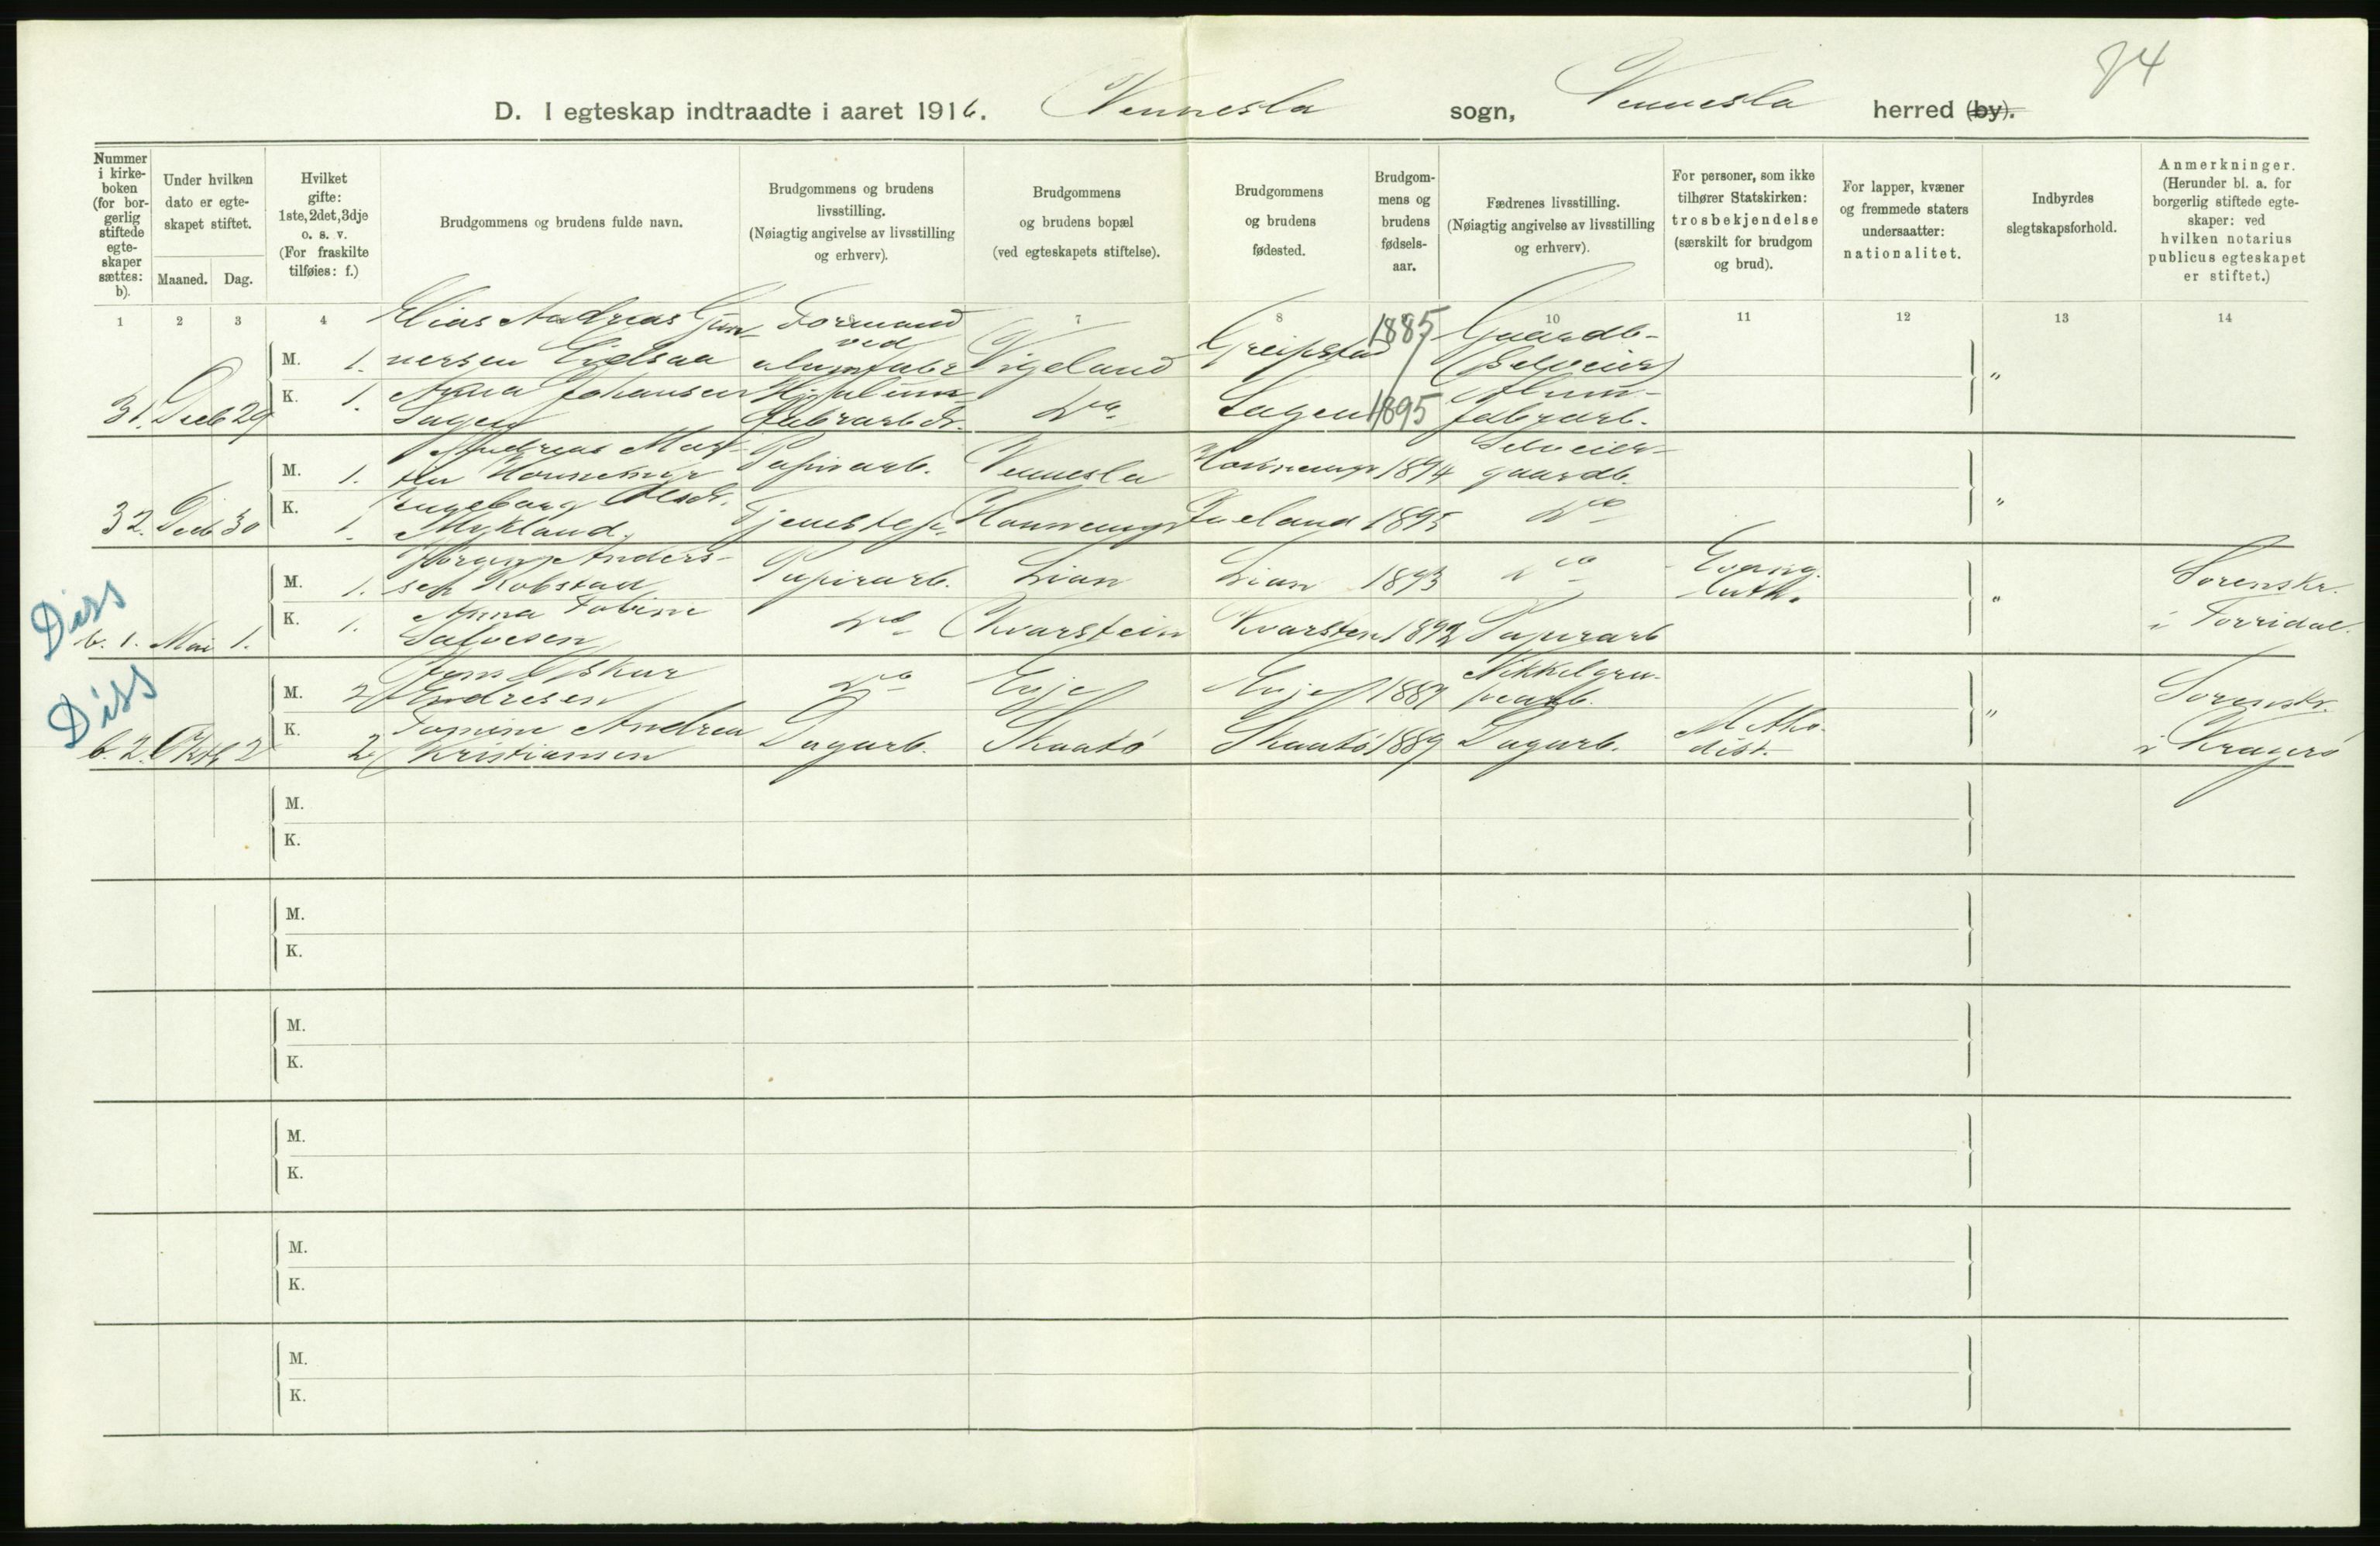 84
D. I egteskap indtraadte i aaret 1916. Vennesla sogn, Vennesla herred (by).
Nummer i kirkeboken (for borgerlig stiftede egteskaper sættes: b).
Under hvilken dato er egteskapet stiftet.
Maaned. Dag.
Hvilket gifte: 1ste, 2det, 3dje o. s. v. (For fraskilte tilføies: f.)
Brudgommens og brudens fulde navn.
Brudgommens og brudens livsstilling. (Nøiagtig angivelse av livsstilling og erhverv).
Brudgommens og brudens bopæl (ved egteskapets stiftelse).
Brudgommens og brudens fødested.
Brudgommens og brudens fødselsaar.
Fædrenes livsstilling. (Nøiagtig angivelse av livsstilling og erhverv).
For personer, som ikke tilhører Statskirken: trosbekjendelse (særskilt for brudgom og brud).
For lapper, kvæner og fremmede staters undersaatter: nationalitet.
Indbyrdes slegtskapsforhold.
Anmerkninger. (Herunder bl. a. for borgerlig stiftede egteskaper: ved hvilken notarius publicus egteskapet er stiftet.)
1 2 3 4 7 8 10 11 12 13 14
M. 1. Elias Andreas Gunnersen Formand ved alumfabr Vigeland Greipstad 1885 Gaardb- (Selveier)
31. Decb 29 K. 1. Anna Johansen Sagen fabrarb. do Sagen 1895 Alum- fabrarb. "
M. 1. Andreas Papirarb. Vennesla 1894 Selveier- gaardb.
32. Decb 30 K. 1. Ingeborg Olsdr. Mykland. Hunnemyr 1895 do "
Diss
M. 1. Anders- sen Robstad Papirarb. Lian Lian 1893 do Evang. luth. Sorenskr.
b. 1. Mai 1. K. 1. Anna Tobine Salvesen do Kvarstein Kvarstein 1892 Papirarb " i Torridal.
Diss
M. 2 Jens Oskar Endresen do Evje Evje 1887 Nikkelgru- vearb. Sorenskr.
b. 2. Oktb 2 K. 2 Andrea Kristiansen Dagarb. Skaatø Skaatø 1889 Dagarb. Metho- dist. " i Kragerø
M.
K.
M.
K.
M.
K.
M.
K.
M.
K.
M.
K.